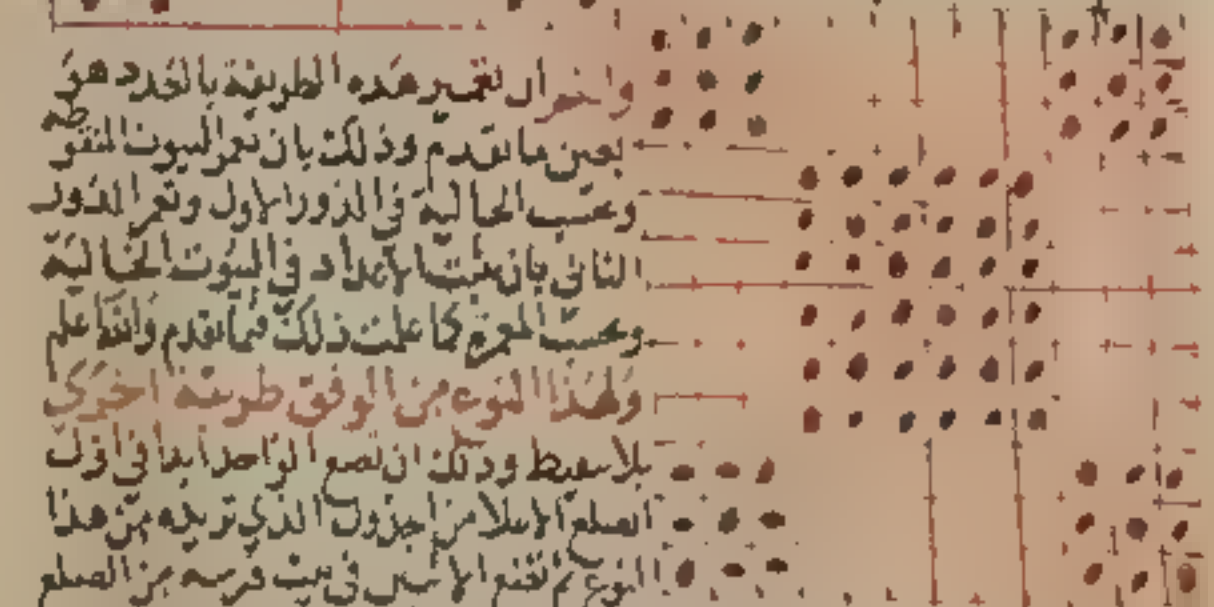 واخر ان تعمير هذه الطريقة بالعدد هو
بعين ما تقدم وذلك بان تعمر البيوت المنقوطة
وتحسب الخالية في الدور الاول وتعمر الدور
الثاني بان تثبت الاعداد في البيوت الخالية
وتحسب المعمرة كما علمت ذلك فيما تقدم والله اعلم
ولهذا النوع من الوفق طريقة اخرى
بلا سقيط وذلك ان تضع الواحد ابدا في اول
الضلع الاعلا من الجدول الذي تريده من هذا
النوع ثم تضع الاثنين في بيت فرسه من الضلع